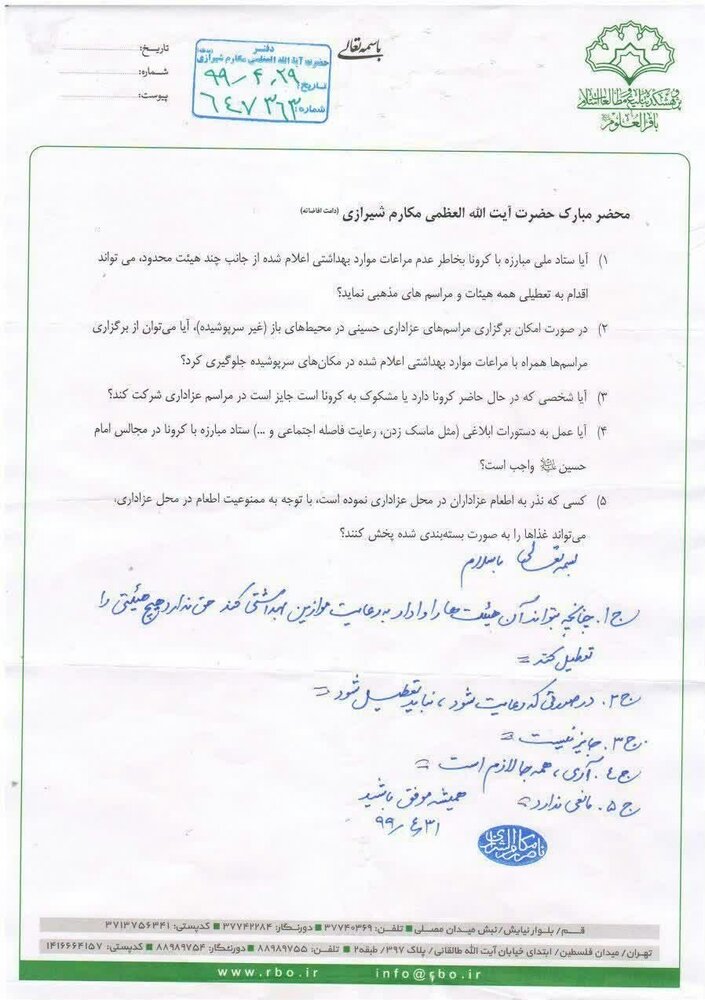 باسمه تعالی
تاریخ:
شماره:
پیوست:
دفتر
حضرت آیة الله العظمی مکارم شیرازی
تاریخ: ۹۹/۴/۲۹
شماره: ۶۴۷۳۶۳
پژوهشکده تبلیغ و مطالعات اسلامی
باقرالعلوم
محضر مبارک حضرت آیت الله العظمی مکارم شیرازی (دامت افاضاته)
۱) آیا ستاد ملی مبارزه با کرونا بخاطر عدم مراعات موارد بهداشتی اعلام شده از جانب چند هیئت محدود، می تواند
اقدام به تعطیلی همه هیئات و مراسم های مذهبی نماید؟
۲) در صورت امکان برگزاری مراسم‌های عزاداری حسینی در محیط‌های باز (غیر سرپوشیده)، آیا می‌توان از برگزاری
مراسم‌ها همراه با مراعات موارد بهداشتی اعلام شده در مکان‌های سرپوشیده جلوگیری کرد؟
۳) آیا شخصی که در حال حاضر کرونا دارد یا مشکوک به کرونا است جایز است در مراسم عزاداری شرکت کند؟
۴) آیا عمل به دستورات ابلاغی (مثل ماسک زدن، رعایت فاصله اجتماعی و ...) ستاد مبارزه با کرونا در مجالس امام
حسین واجب است؟
۵) کسی که نذر به اطعام عزاداران در محل عزاداری نموده است، با توجه به ممنوعیت اطعام در محل عزاداری،
می‌تواند غذاها را به صورت بسته‌بندی شده پخش کنند؟
بسمه تعالی باسلام
ج۱. چنانچه بتواند آن هیئت ها را وادار به رعایت موازین بهداشتی کند حق ندارد هیچ هیئتی را
تعطیل کند
ج۲. در صورتی که رعایت شود، نباید تعطیل شود
ج۳. جایز نیست
ج۴. آری، همه جا لازم است
ج۵. مانعی ندارد
همیشه موفق باشید
۹۹/۴/۳۱
ناصر مکارم الشیرازی
قـم/ بلـوار نیایش/ نبش میدان مصلـی تلفن: ۳۷۷۴۰۳۶۹ دورنـگار: ۳۷۷۴۲۲۸۴ کدپستی: ۳۷۱۳۷۵۶۳۴۱
تهران/ میدان فلسطین/ ابتدای خیابان آیت الله طالقانی/ پلاک ۳۹۷/ طبقه۲ تلفن: ۸۸۹۸۹۷۵۵ دورنگار: ۸۸۹۸۹۷۵۴ کدپستی: ۱۴۱۶۶۶۴۱۵۷
www.rbo.ir info@rbo.ir